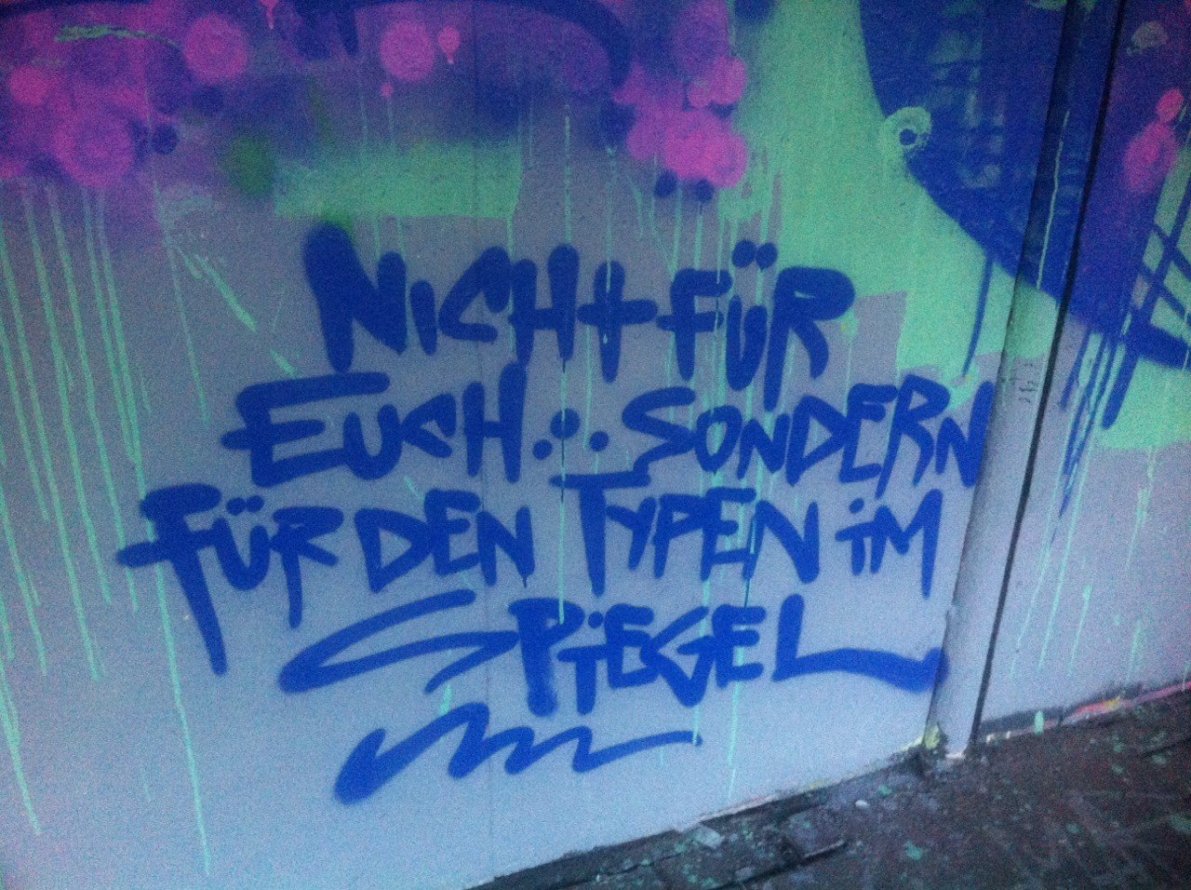 NiCHT FÜR
EUCH... SONDERN
FÜR DEN TYPEN iM
SPiEGEL